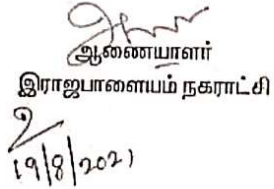 ஆணையாளர்
இராஜபாளையம் நகராட்சி
19/8/2021